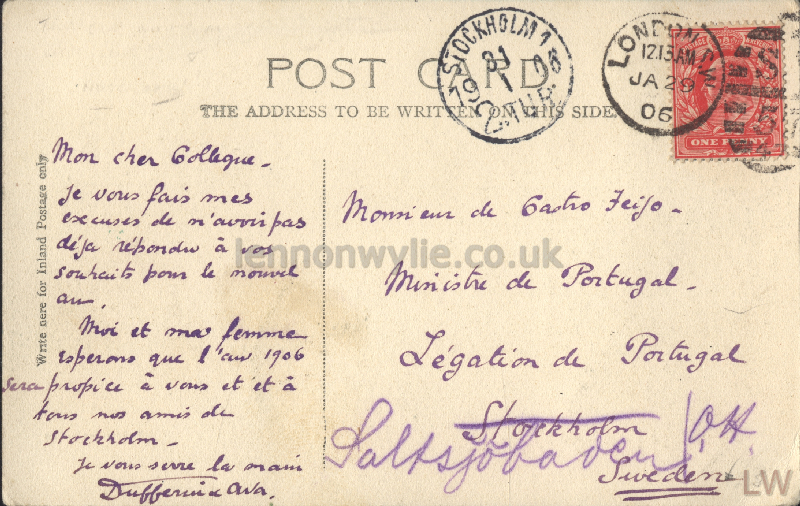 POST CARD
THE ADDRESS TO BE WRITTEN ON THIS SIDE
Write here for Inland Postage only
STOCKHOLM 1
31
1
1906
TUR.
LONDON S.W
12.15AM
JA 28
06
ONE PENNY
Mon cher Collegue -
Je vous fais mes
excuses de n'avoir pas
déja répondu à vos
souhaits pour le nouvel
an.
Moi et ma femme
esperons que l'an 1906
sera propice à vous et et à
tous nos amis de
Stockholm -
Je vous serre la main
Dufferin & Ava.
Monsieur de Castro Feijo -
Ministre de Portugal -
Légation de Portugal
Stockholm
Saltsjöbaden
Sweden
lennonwylie.co.uk
LW